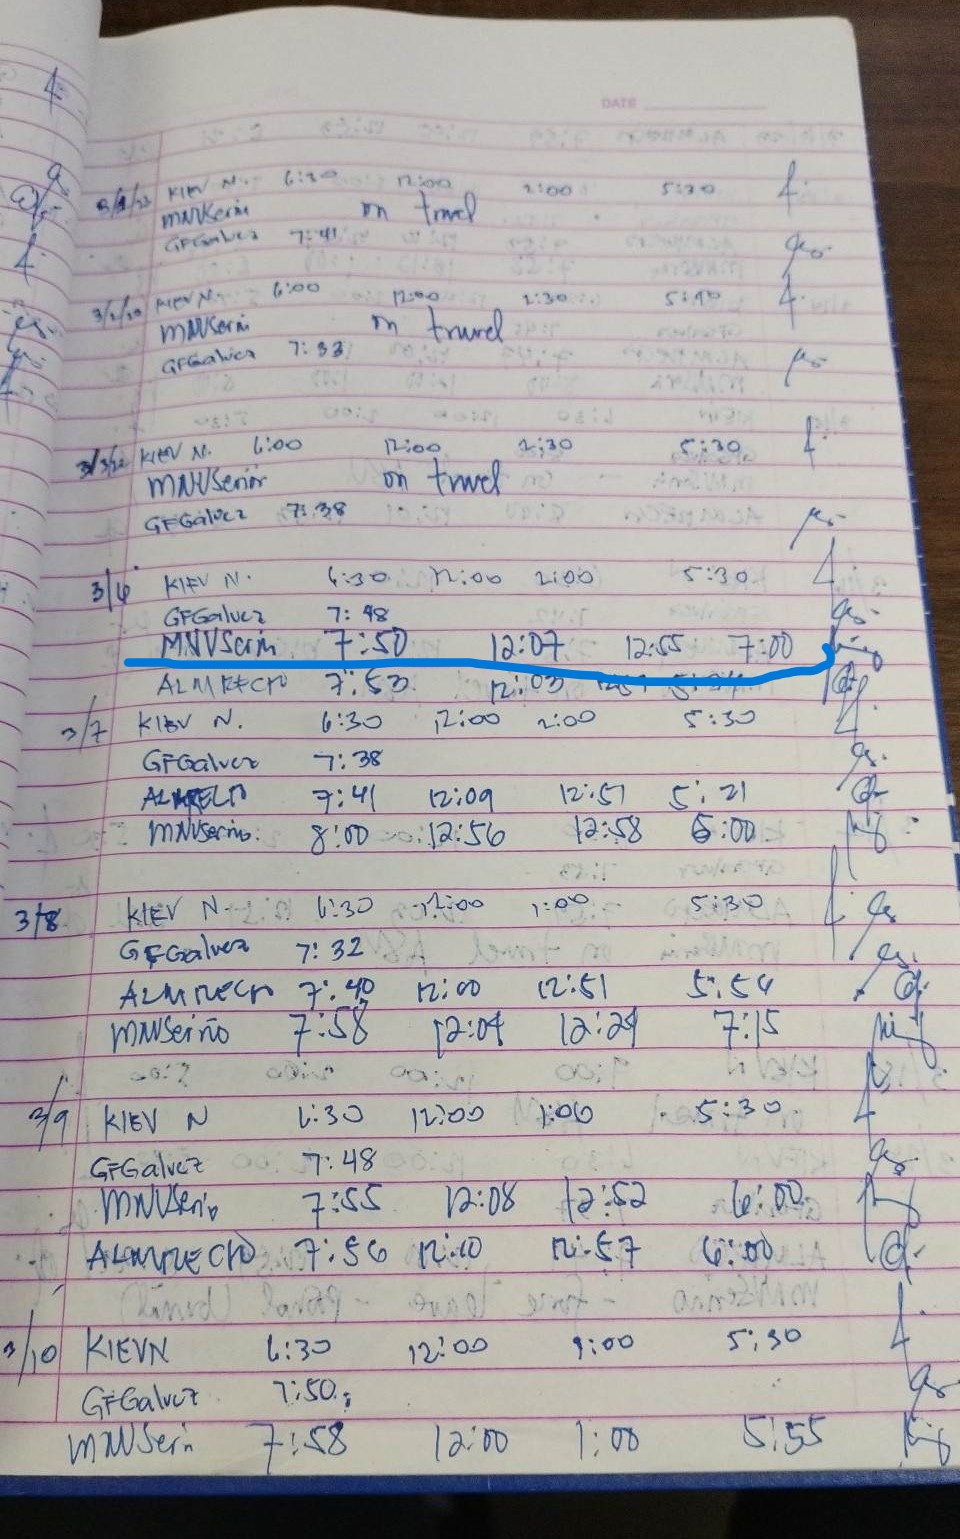 DATE
3/1/23 KIEV N. 6:30 12:00 1:00 5:30
MNVSerin on travel
GFGalvez 7:41
3/2/23 KIEV N. 6:00 12:00 1:30 5:40
MNVSerin on travel
GFGalvez 7:33
3/3/23 KIEV N. 6:00 12:00 1:30 5:30
MNVSerin on travel
GFGalvez 7:38
3/6 KIEV N. 6:30 12:00 1:00 5:30
GFGalvez 7:48
MNVSerin 7:50 12:07 12:55 7:00
ALMRECTO 7:53 12:03
3/7 KIEV N. 6:30 12:00 1:00 5:30
GFGalvez 7:38
ALMRECTO 7:41 12:09 12:51 5:21
MNVSerino 8:00 12:56 12:58 6:00
3/8 KIEV N. 6:30 12:00 1:00 5:30
GFGalvez 7:32
ALMRECTO 7:40 12:00 12:51 5:54
MNVSerino 7:58 12:04 12:29 7:15
3/9 KIEV N 6:30 12:00 1:00 5:30
GFGalvez 7:48
MNVSerino 7:55 12:08 12:52 6:00
ALMRECTO 7:56 12:10 12:57 6:00
3/10 KIEVN 6:30 12:00 1:00 5:30
GFGalvez 7:50
MNVSerin 7:58 12:00 1:00 5:55